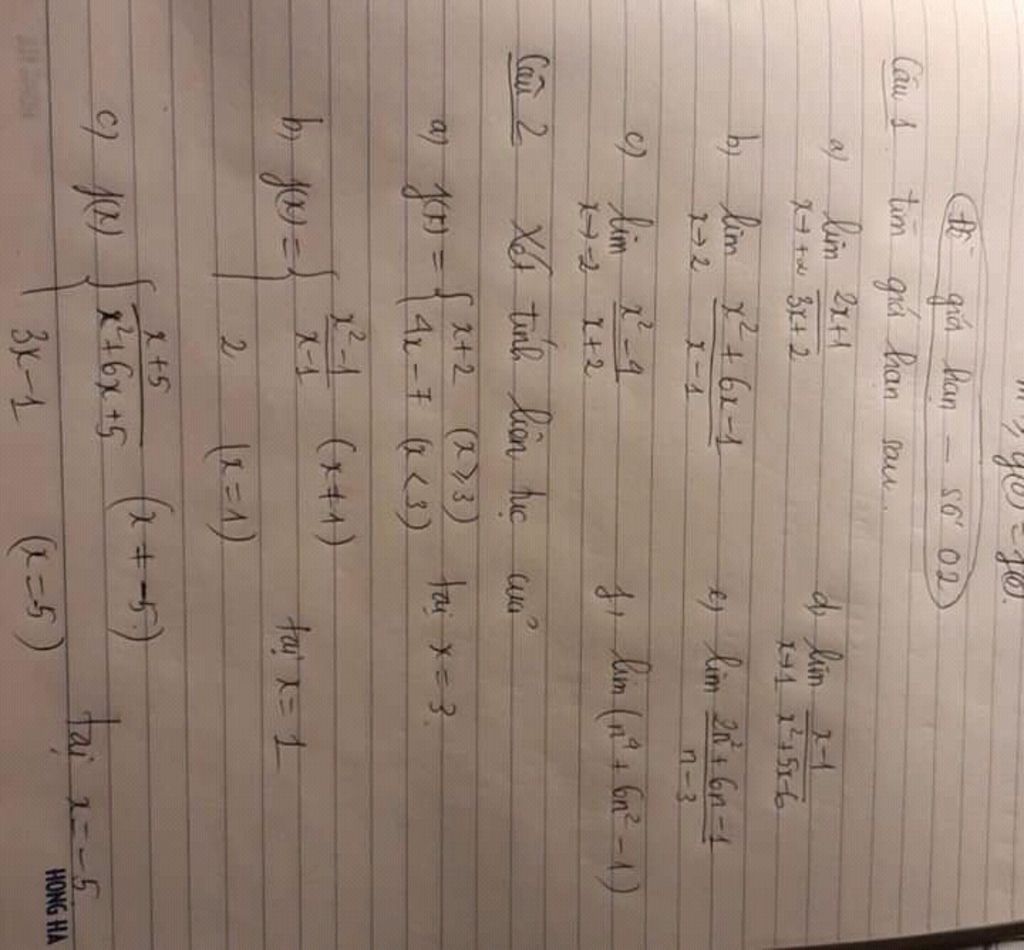 Đề giới hạn - số 02
Câu 1 tìm giá hạn sau.
a) lim x→+∞ 2x+1 / 3x+2
d, lim x→1 x-1 / x²+5x-6
b) lim x→2 x²+6x-1 / x-1
e, lim 2n²+6n-1 / n-3
c) lim x→-2 x²-4 / x+2
f, lim (n⁴+6n²-1)
Câu 2 Xét tính liên tục của
a) f(x) = { x+2 (x≥3)
4x-7 (x<3) tại x=3.
b) f(x) = { x²-1 / x-1 (x≠1)
2 (x=1) tại x=1
c) f(x) { x+5 / x²+6x+5 (x≠-5)
3x-1 (x=-5) tại x=-5
HONG HA